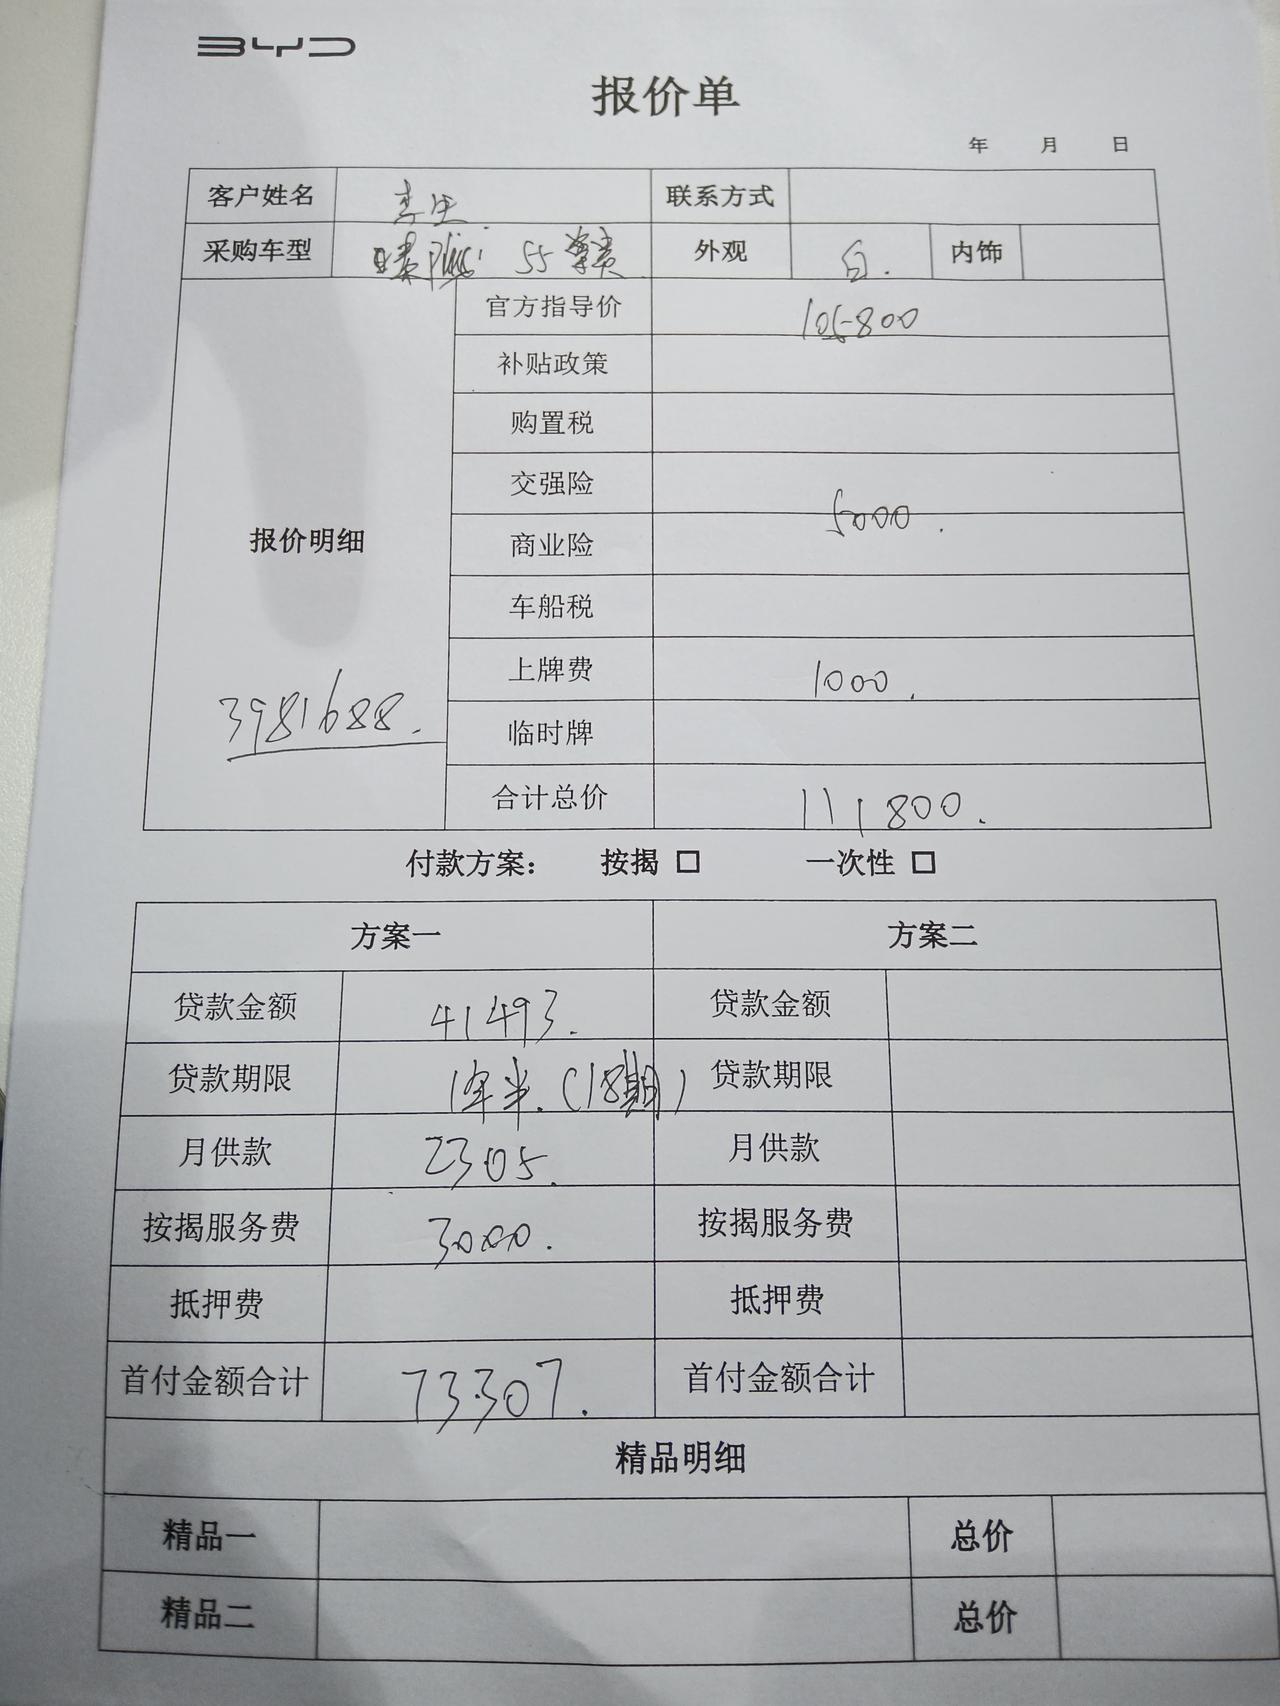 BYD
报价单
年 月 日
客户姓名 李生 联系方式
采购车型 秦PLUS 55 尊贵 外观 白. 内饰
报价明细
官方指导价 105800
补贴政策
购置税
交强险
5000.
商业险
车船税
上牌费 1000.
3981688.
临时牌
合计总价 111800.
付款方案: 按揭 □ 一次性 □
方案一 方案二
贷款金额 41493. 贷款金额
贷款期限 1年半.(18期) 贷款期限
月供款 2305. 月供款
按揭服务费 3000. 按揭服务费
抵押费 抵押费
首付金额合计 73307. 首付金额合计
精品明细
精品一 总价
精品二 总价